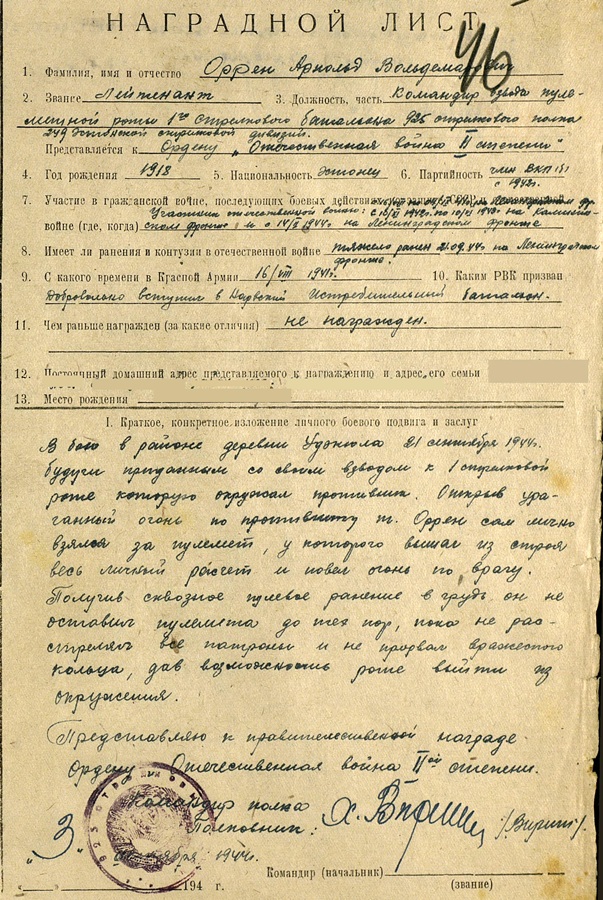 НАГРАДНОЙ ЛИСТ
46
1. Фамилия, имя и отчество Оррен Арнольд Вольдемарович
2. Звание Лейтенант 3. Должность, часть Командир взвода пуле-
метной роты 1го стрелкового батальона 925 стрелкового полка
249 эстонской стрелковой дивизии.
Представляется к Ордену „Отечественная война II степени"
4. Год рождения 1918 5. Национальность эстонец 6. Партийность член ВКП(б)
с 1942г.
7. Участие в гражданской войне, последующих боевых действиях
Участник отечественной войны: с по на Калининс-
войне (где, когда) ском фронте и с 14/II 1944г на Ленинградском фронте
8. Имеет ли ранения и контузии в отечественной войне тяжело ранен 21.09.44г на Ленинградском
фронте.
9. С какого времени в Красной Армии 16/VIII 1941г. 10. Каким РВК призван
Добровольно вступил в Нарвский Истребительный батальон.
11. Чем раньше награжден (за какие отличия) не награжден.
12. Постоянный домашний адрес представляемого к награждению и адрес его семьи
13. Место рождения
I. Краткое, конкретное изложение личного боевого подвига и заслуг
В бою в районе деревни 21 сентября 1944г.
будучи приданным со своим взводом к 1 стрелковой
роте которую окружал противник. Открыв ура-
ганный огонь по противнику т. Оррен сам лично
взялся за пулемет, у которого вышел из строя
весь личный расчет и повел огонь по врагу.
Получив сквозное пулевое ранение в грудь он не
оставил пулемета до тех пор, пока не рас-
стрелял все патроны и не прорвал вражеского
кольца, дав возможность роте выйти из
окружения.
Представляю к правительственной награде
Ордену Отечественная война IIой степени.
Командир полка
Полковник:
„3" 1944г.
Командир (начальник)
„ " 194 г. (звание)